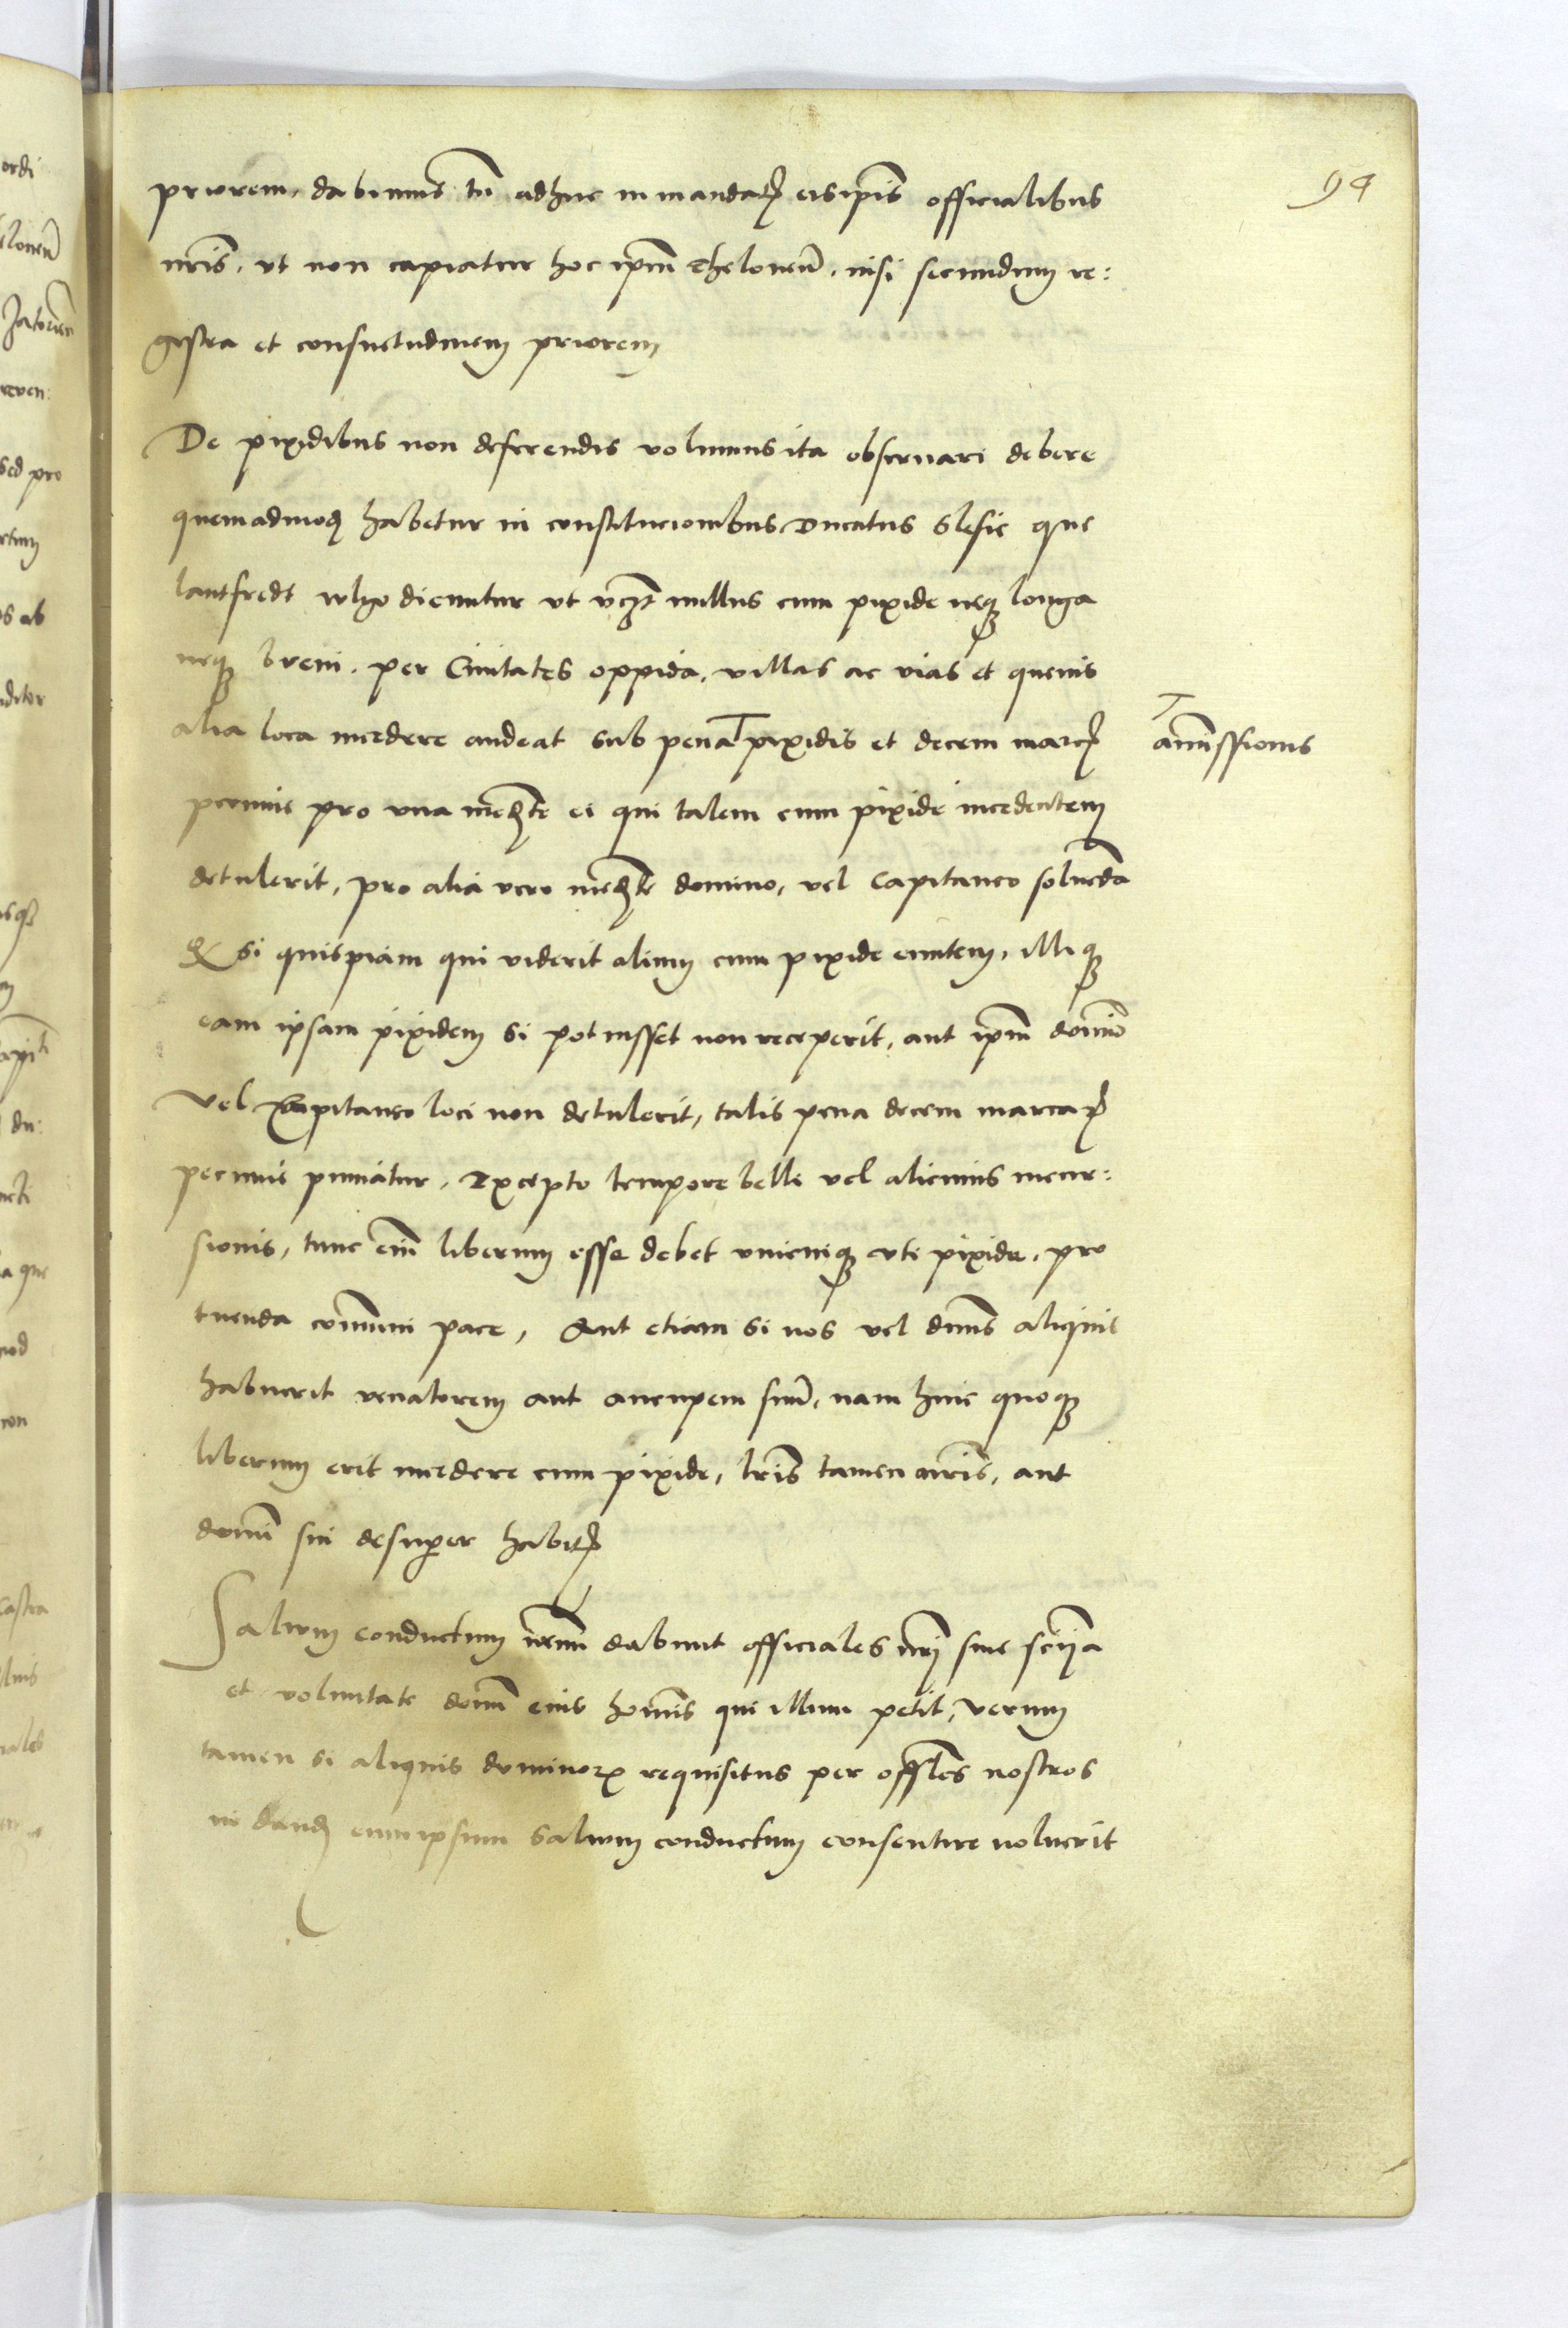 94
priorem, dabimus tn̄ adhuc in mandatꝭ eisip̄is officialibus
nr̄is, vt non capiatur hoc ip̄m theloneū, nisi secundum re:
gestra et consuetudinem priorem
De pixidibus non deferendis volumus ita obseruari debere
quemadmoꝗ habetur in constitucionibus Ducatus Slesie que
lantfredt wlgo dicuntur vt vcꝫt nullus cum pixide neqꝫ longa
neqꝫ breui, per Ciuitates oppida, villas ac vias et queuis
alia loca incedere audeat sub pena ⸆ pixidis et decem marcꝭ
⸆ amissionis
pecunie pro vna medꝫte ei qui talem cum pixide incedentem
detulerit, pro alia vero medꝫte domino, vel Capitaneo soluēda
Et si quispiam qui viderit alium cum pixide euntem, illiqꝫ
eam ipsam pixidem si potuisset non receperit, aut ip̄m domīo
Vel Capitaneo loci non detulerit, talis pena decem marcaꝝ
pecunie puniatur, Excepto tempore belli vel alicuius incur:
sionis, tunc em̄ liberum esse debet vnicuiqꝫ vti pixide, pro
tuenda communi pace, Aut etiam si nos vel dn̄us aliquis
habuerit venatorem aut aucupem suū, nam huic quoqꝫ
liberum erit incedere cum pixide, lr̄is tamen nr̄is, aut
domī sui desuper habitꝭ
Saluum conductum nemī dabunt officiales nr̄j sine scīja
et voluntate domī eius homīs qui illum petit, verum
tamen si aliquis dominoꝝ requisitus per off̄les nostros
in dandꝭ eum ipsum Saluum conductum consentire noluerit